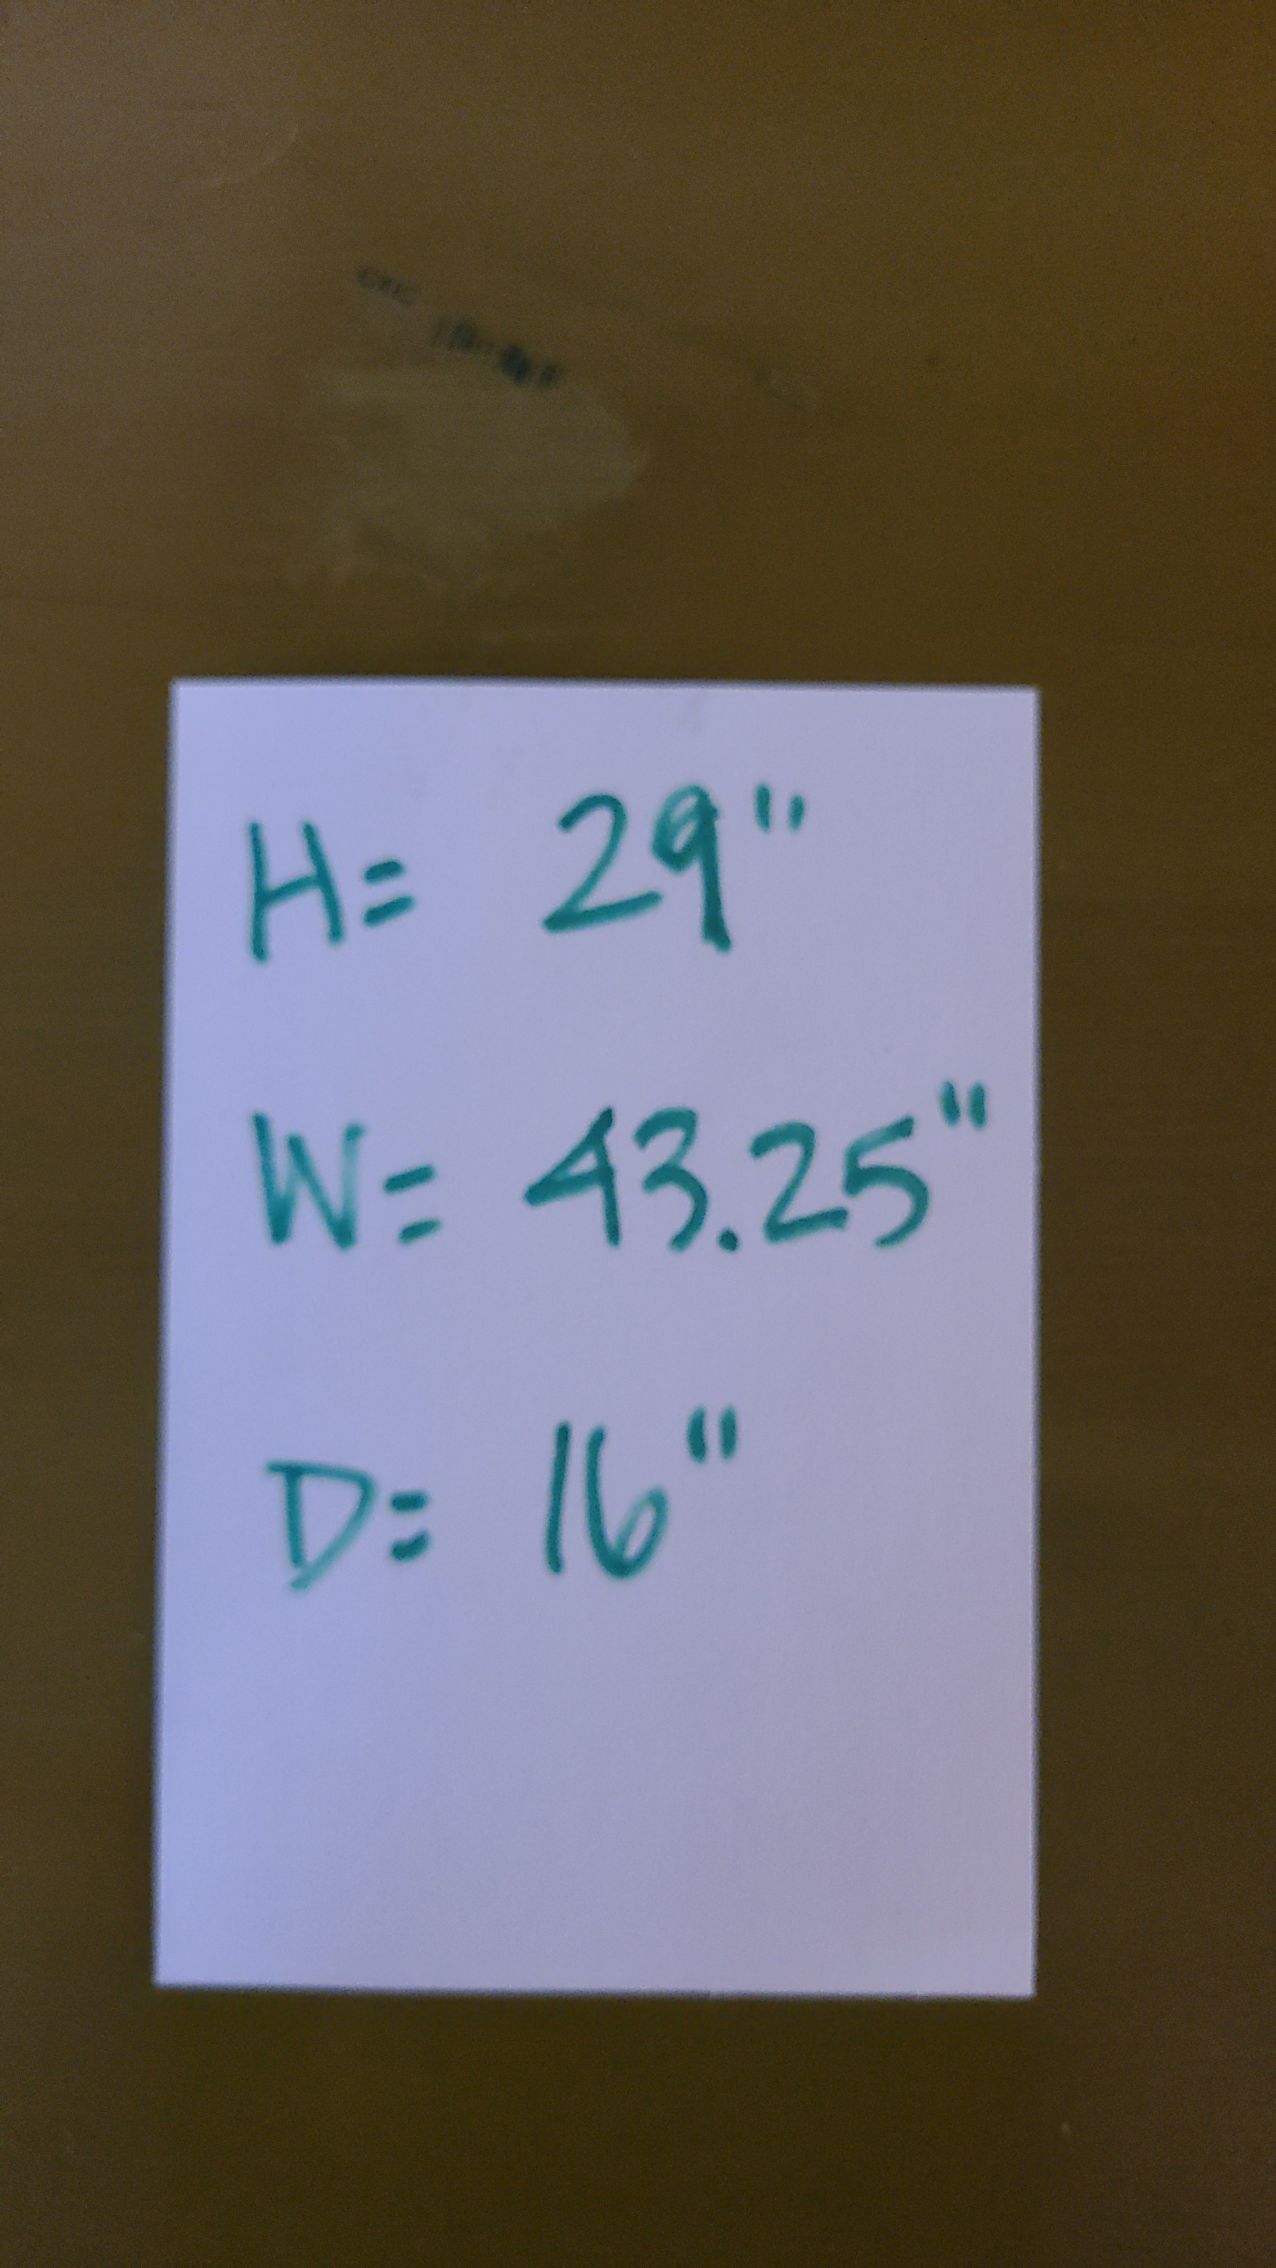 H= 29"
W= 43.25"
D= 16"